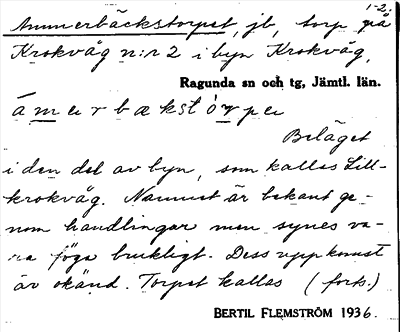 1-2.
Ammerbäckstorpet, jb, torp på
Krokvåg n:r 2 i byn Krokvåg,
Ragunda sn och tg, Jämtl. län.
ámerbækstòrpe
Beläget
i den del av byn, som kallas Lill-
krokvåg. Namnet är bekant ge-
nom handlingar men synes va-
ra föga brukligt. Dess uppkomst
är okänd. Torpet kallas (forts.)
BERTIL FLEMSTRÖM 1936.